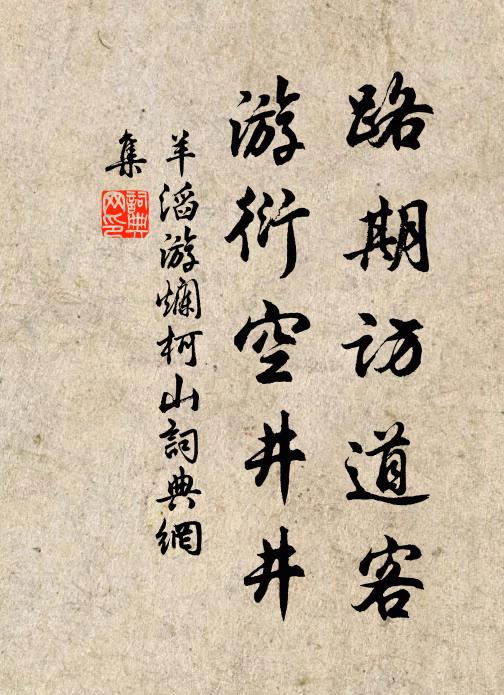 路期訪道客
游衍空井井
羊滔游爛柯山詞典網
集
詞典
网印